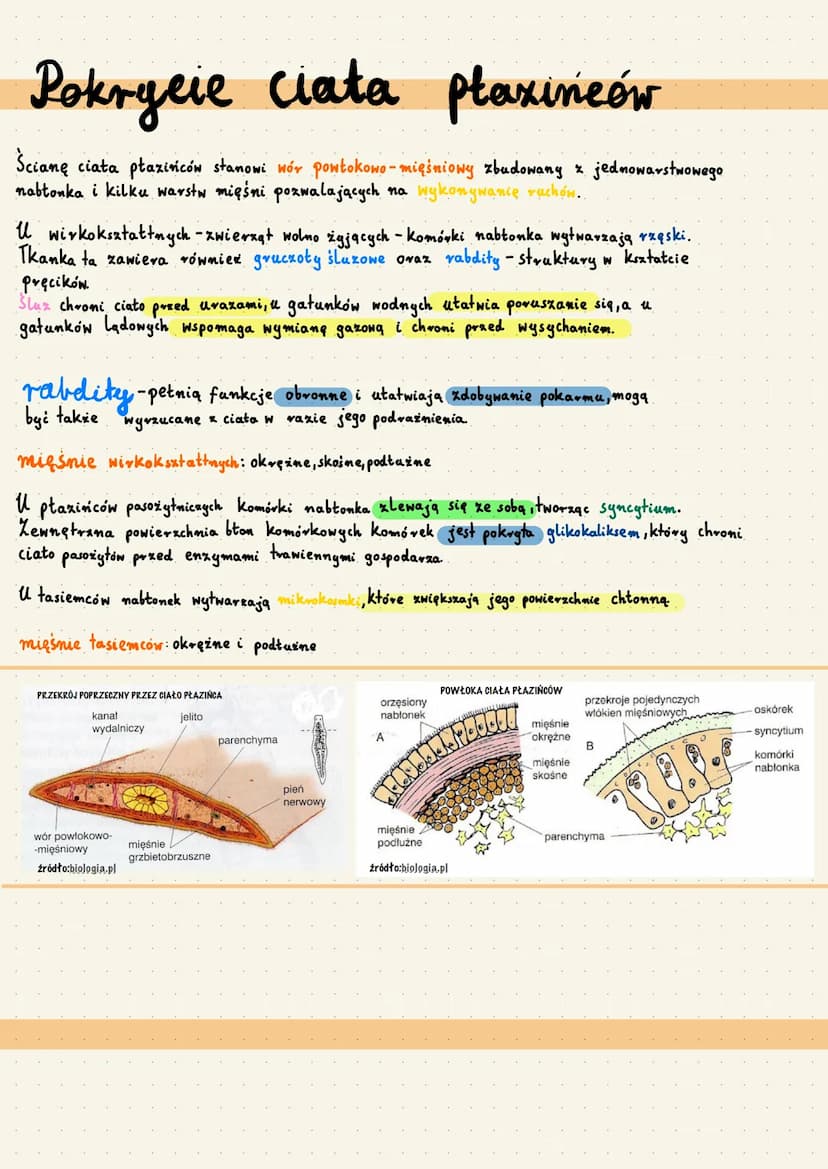 Pokrycie ciała płazińców
Ścianę ciała płazińców stanowi wór powłokowo-mięśniowy zbudowany z jednowarstwowego
nabłonka i kilku warstw mięśni pozwalających na wykonywanie ruchów.
U wirkokształtnych - zwierząt wolno żyjących - komórki nabłonka wytwarzają rzęski.
Tkanka ta zawiera również gruczoły śluzowe oraz rabdity - struktury w kształcie
pręcików.
Śluz chroni ciało przed urazami, u gatunków wodnych ułatwia poruszanie się, a u
gatunków lądowych wspomaga wymianę gazową i chroni przed wysychaniem.
rabdity - pełnią funkcje obronne i ułatwiają zdobywanie pokarmu, mogą
być także wyrzucane z ciała w razie jego podrażnienia.
mięśnie wirkokształtnych: okrężne, skośne, podłużne
U płazińców pasożytniczych komórki nabłonka zlewają się ze sobą, tworząc syncytium.
Zewnętrzna powierzchnia błon komórkowych komórek jest pokryta glikokaliksem, który chroni
ciało pasożytów przed enzymami trawiennymi gospodarza.
U tasiemców nabłonek wytwarzają mikrokosmki, które zwiększają jego powierzchnie chłonną.
mięśnie tasiemców: okrężne i podłużne
PRZEKRÓJ POPRZECZNY PRZEZ CIAŁO PŁAZIŃCA
kanał
wydalniczy
jelito
parenchyma
pień
nerwowy
wór powłokowo-
-mięśniowy
mięśnie
grzbietobrzuszne
źródło:biologia.pl
POWŁOKA CIAŁA PŁAZIŃCÓW
orzęsiony
nabłonek
A
mięśnie
okrężne
mięśnie
skośne
mięśnie
podłużne
parenchyma
przekroje pojedynczych
włókien mięśniowych
B
oskórek
syncytium
komórki
nabłonka
źródło:biologia.pl